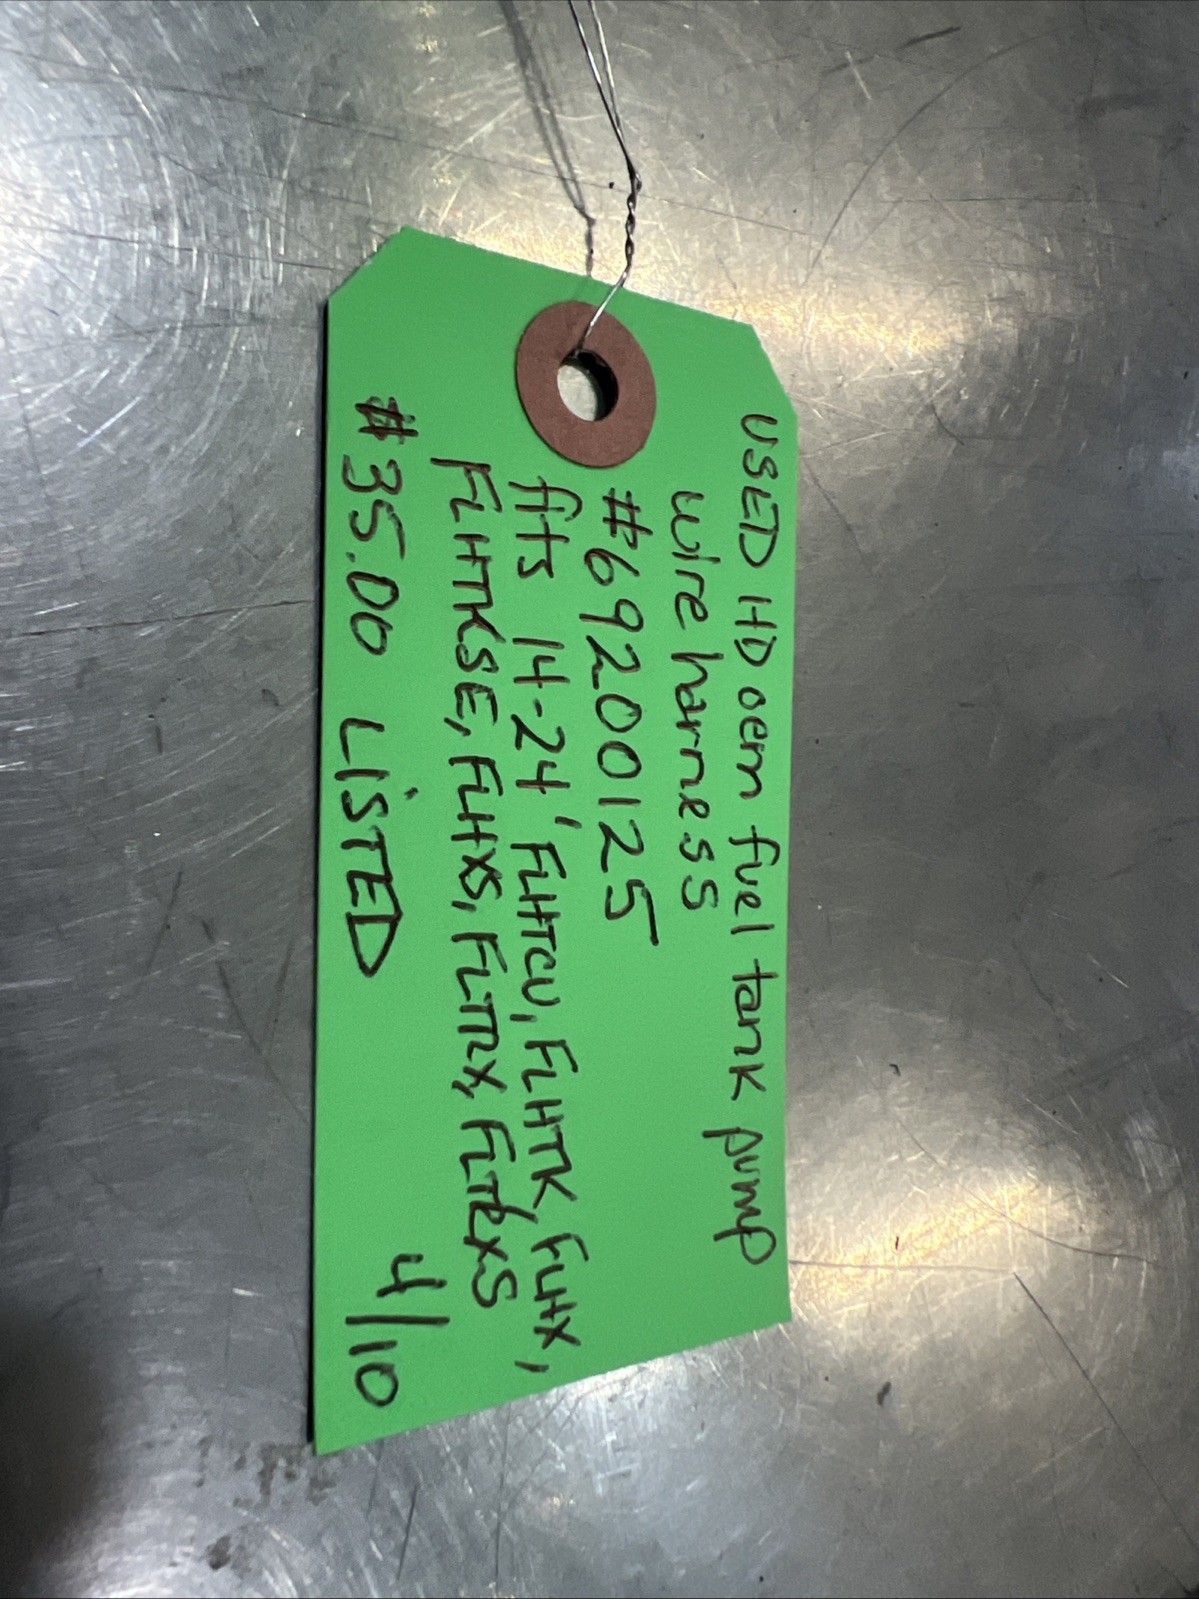 USED HD oem fuel tank pump
wire harness
#69200125
fits 14-24', FLHTCU, FLHTK FLHX,
FLHTKSE, FLHXS, FLTRX, FLTRXS
#35.00 LiSTED 4/10